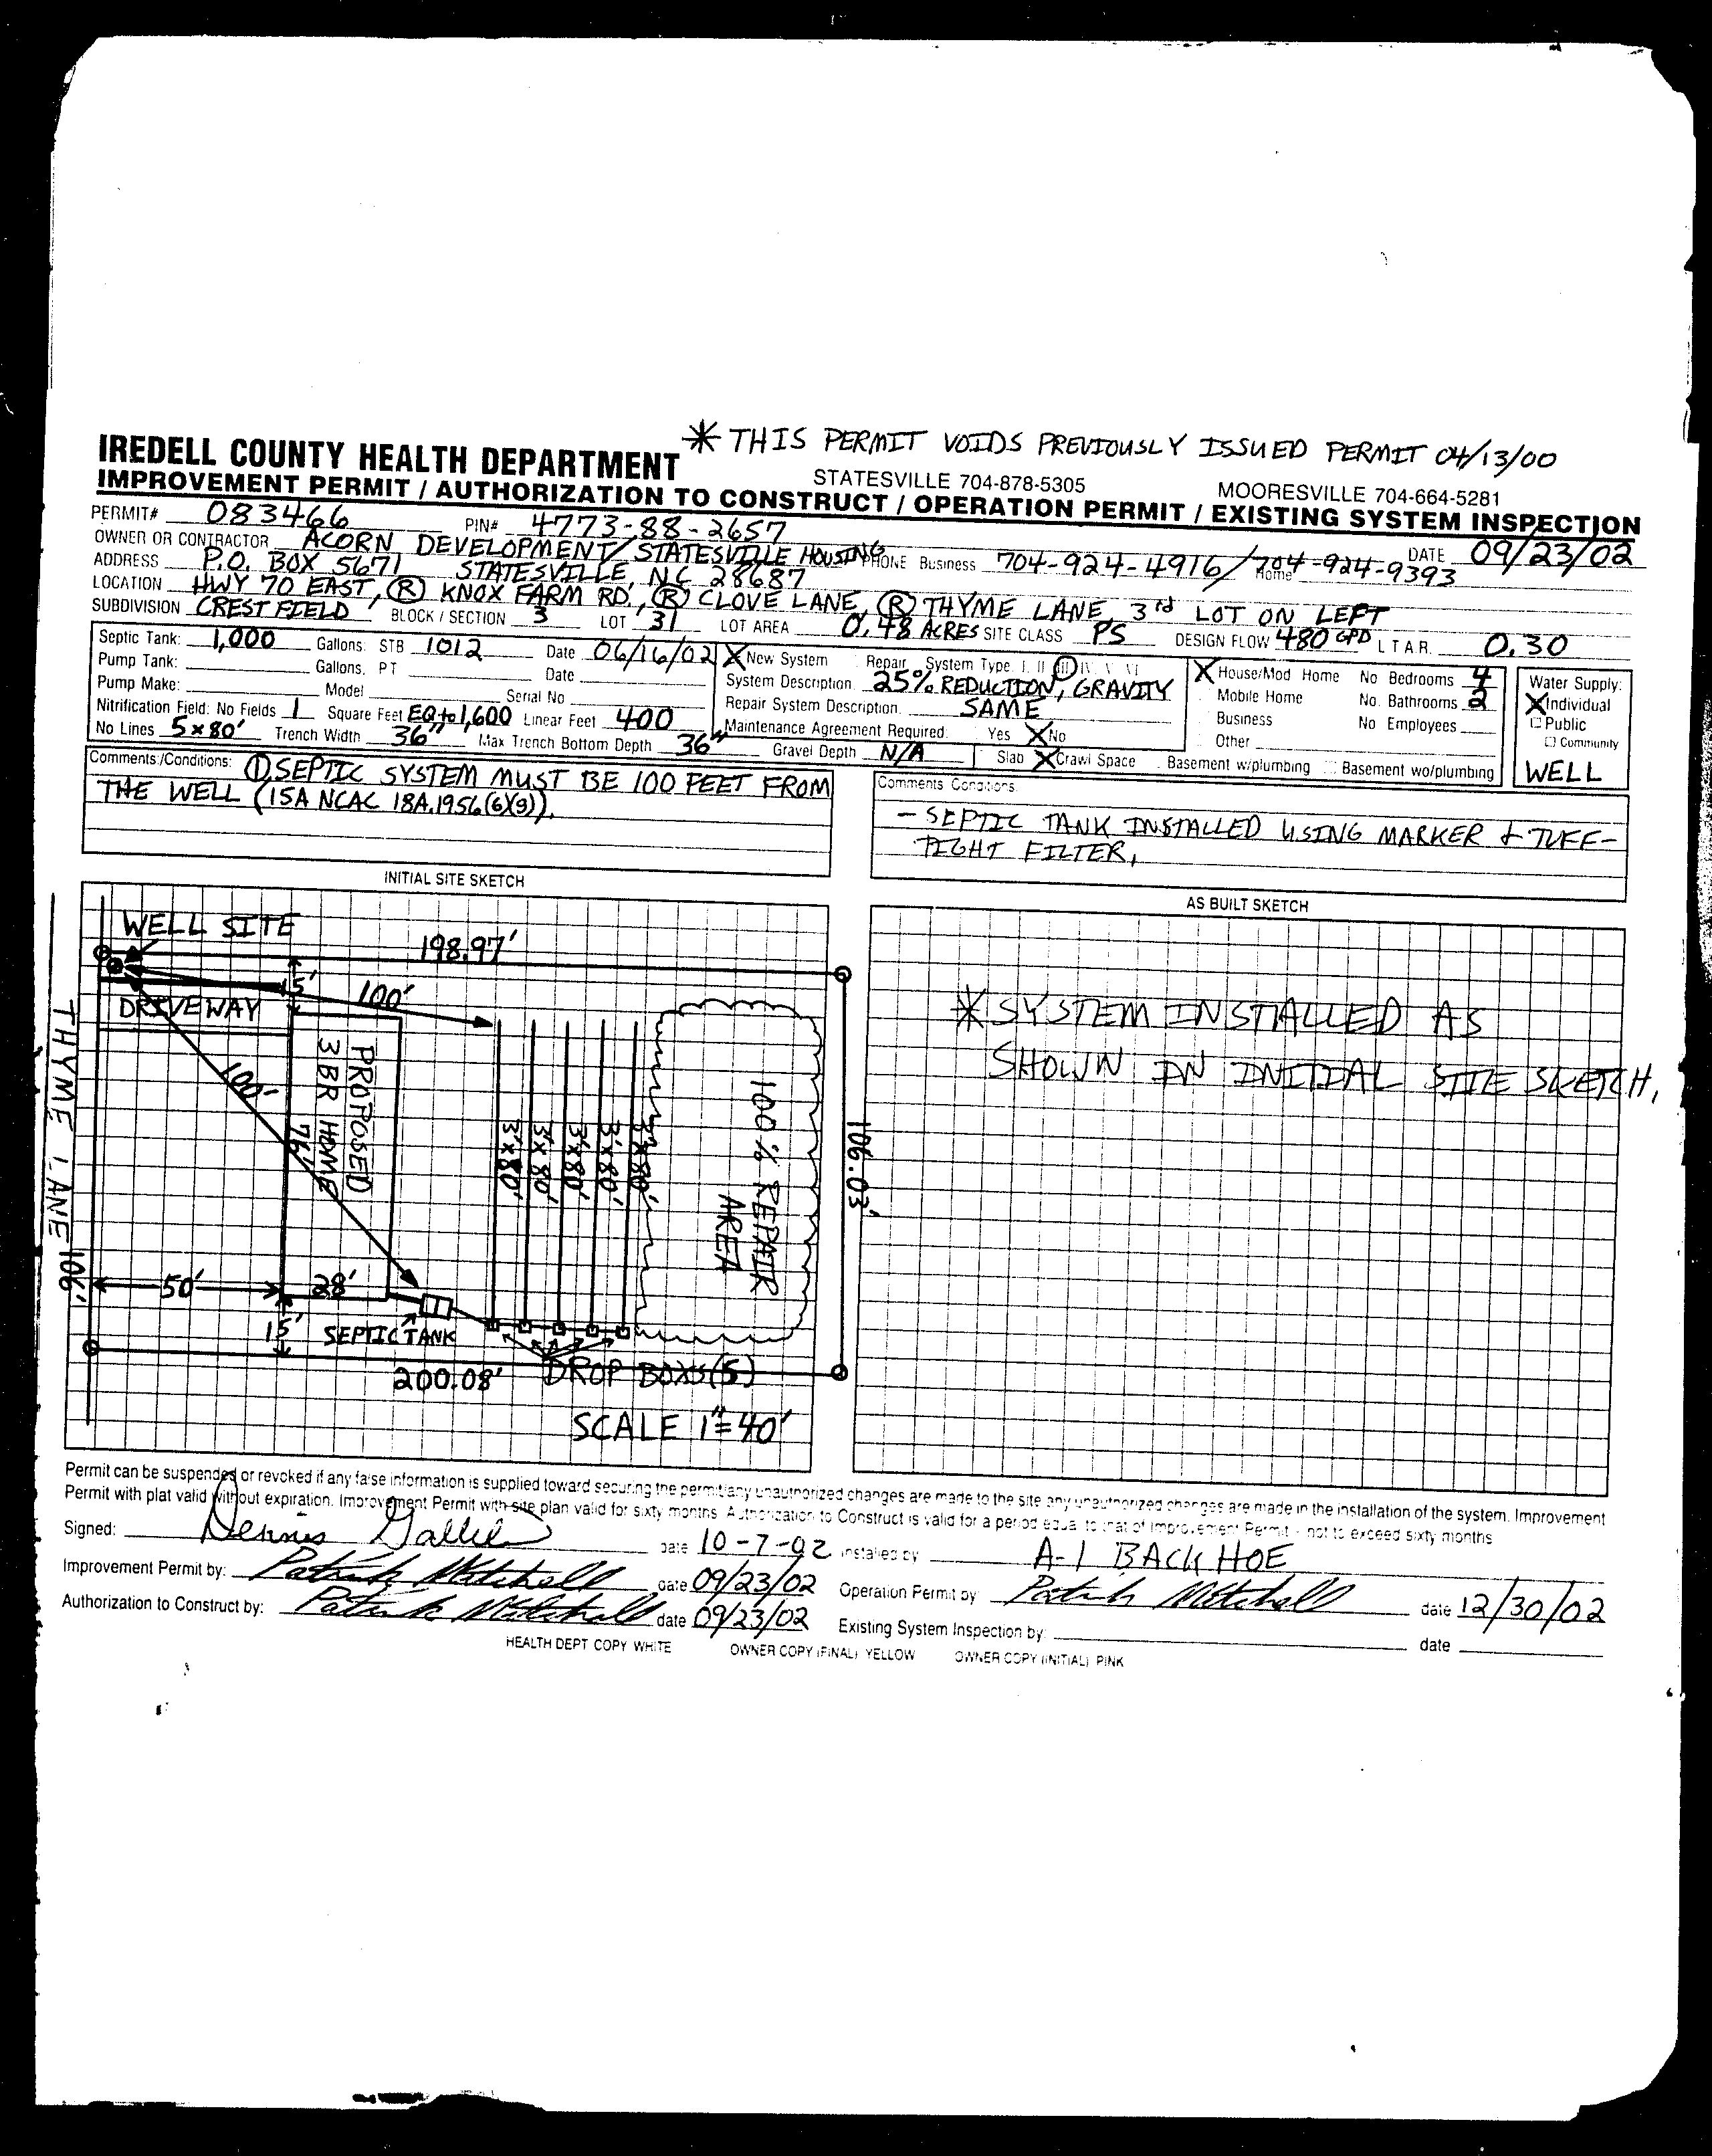 * THIS PERMIT VOIDS PREVIOUSLY ISSUED PERMIT 04/13/00
IREDELL COUNTY HEALTH DEPARTMENT
STATESVILLE 704-878-5305 MOORESVILLE 704-664-5281
IMPROVEMENT PERMIT / AUTHORIZATION TO CONSTRUCT / OPERATION PERMIT / EXISTING SYSTEM INSPECTION
PERMIT# 083466 PIN# 4773-88-2657
OWNER OR CONTRACTOR ACORN DEVELOPMENT/STATESVILLE HOUSING PHONE Business 704-924-4916/ Home 704-924-9393 DATE 09/23/02
ADDRESS P.O. BOX 5671 STATESVILLE, NC 28687
LOCATION HWY 70 EAST, (R) KNOX FARM RD., (R) CLOVE LANE, (R) THYME LANE, 3rd LOT ON LEFT
SUBDIVISION CREST FIELD BLOCK / SECTION 3 LOT 31 LOT AREA 0.48 ACRES SITE CLASS PS DESIGN FLOW 480 GPD L T A R. 0.30
Septic Tank: 1,000 Gallons: STB 1012 Date 06/16/02
Pump Tank: Gallons, PT Date
Pump Make: Model Serial No
Nitrification Field: No Fields 1 Square Feet EQ to 1,600 Linear Feet 400
No Lines 5x80' Trench Width 36" Max Trench Bottom Depth 36" Gravel Depth N/A
X New System Repair System Type I II III IV V VI
System Description 25% REDUCTION, GRAVITY
Repair System Description. SAME
Maintenance Agreement Required: Yes X No
Slab X Crawl Space Basement w/plumbing Basement wo/plumbing
X House/Mod Home No Bedrooms 4
Mobile Home No. Bathrooms 2
Business No Employees
Other
Water Supply:
X Individual
Public
Community
WELL
Comments/Conditions: (1) SEPTIC SYSTEM MUST BE 100 FEET FROM
THE WELL (15A NCAC 18A.1956(6)(g)).
Comments Conditions.
- SEPTIC TANK INSTALLED USING MARKER & TUFF-
TIGHT FILTER,
INITIAL SITE SKETCH
WELL SITE
198.97'
15'
100'
DRIVEWAY
100'
PROPOSED
3 BR HOME
76'
3'x80'
3'x80'
3'x80'
3'x80'
3'x80'
100% REPAIR
AREA
106.03'
THYME LANE
106'
50'
28'
15'
SEPTIC TANK
200.08'
DROP BOXS (5)
SCALE 1"=40'
AS BUILT SKETCH
* SYSTEM INSTALLED AS
SHOWN IN INITIAL SITE SKETCH.
Permit can be suspended or revoked if any false information is supplied toward securing the permit/any unauthorized changes are made to the site any unauthorized changes are made in the installation of the system. Improvement
Permit with plat valid without expiration. Improvement Permit with site plan valid for sixty months Authorization to Construct is valid for a period equal to that of Improvement Permit - not to exceed sixty months
Signed: Dennis date 10-7-02 installed by A-1 BACKHOE
Improvement Permit by: Patrick Mitchell date 09/23/02 Operation Permit by Patrick Mitchell date 12/30/02
Authorization to Construct by: Patrick Mitchell date 09/23/02 Existing System Inspection by: date
HEALTH DEPT COPY WHITE OWNER COPY (FINAL) YELLOW OWNER COPY (INITIAL) PINK